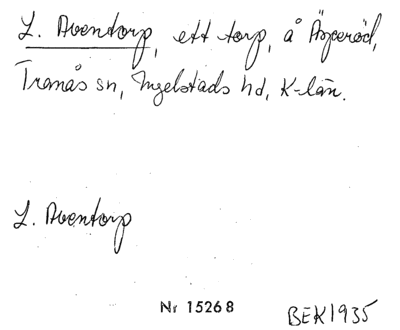 L. Aventorp, ett torp, å Äsperöd,
Tranås sn, Ingelstads hd, K-län.
L. Aventorp
Nr 15268
BEK1935